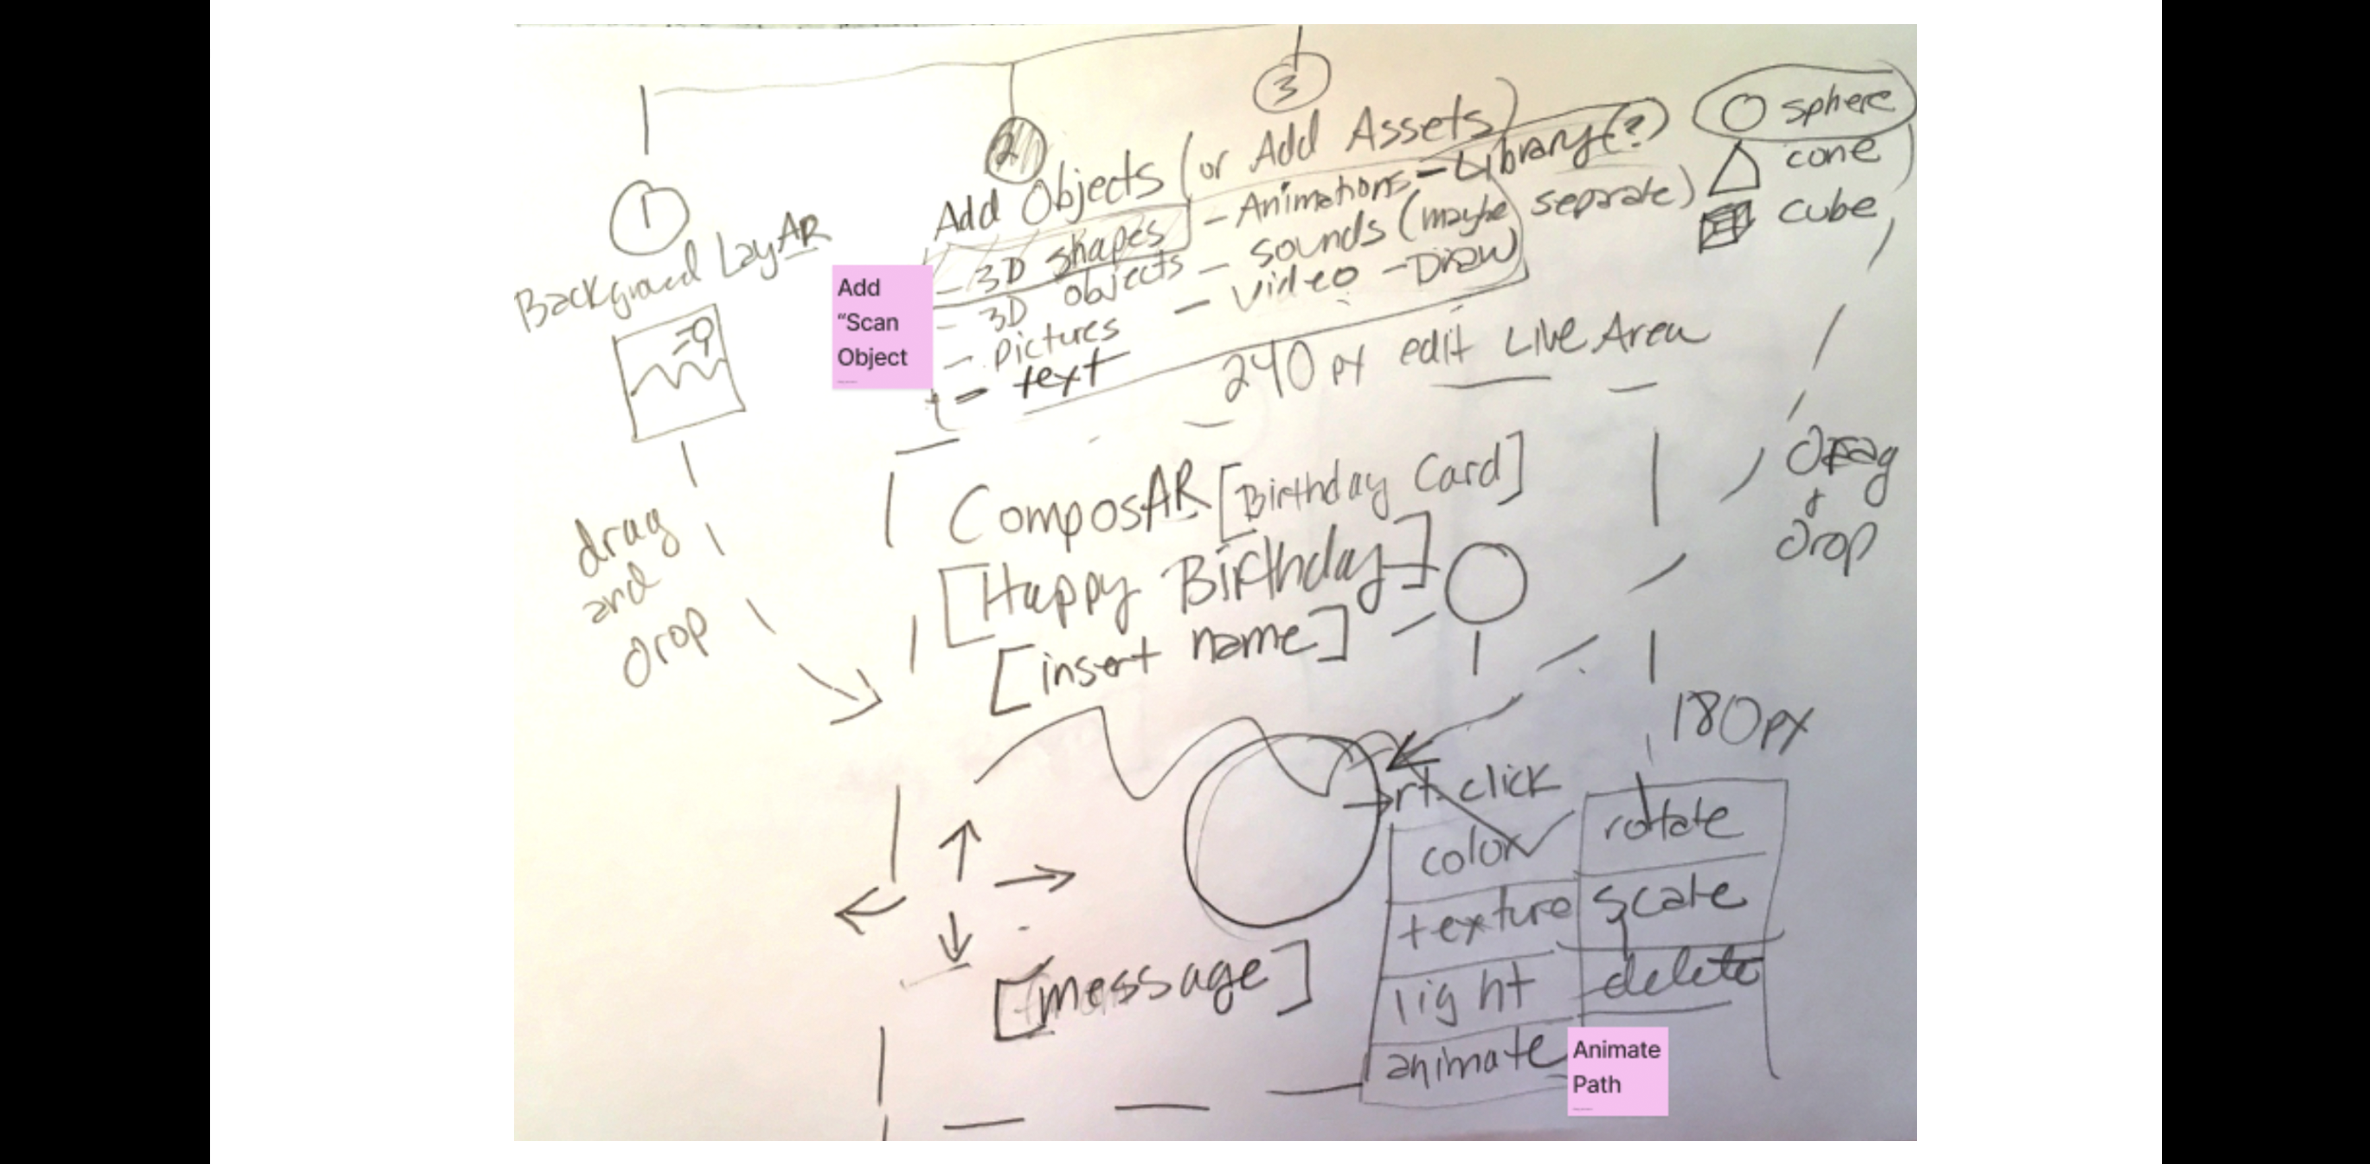 3
2
1
Add Objects (or Add Assets)
- 3D shapes
- 3D objects
- pictures
- text
- Animations
- sounds (maybe separate)
- video
- Draw
- Library(?)
sphere
cone
cube
Background LayAR
Add
“Scan
Object
240 px edit Live Area
drag
and
drop
Drag
+
Drop
ComposAR [Birthday Card]
[Happy Birthday]
[insert name]
180px
rt. click
color
texture
light
animate
rotate
scale
delete
[message]
Animate
Path